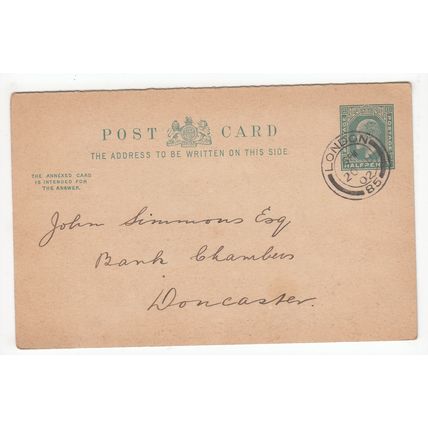 POST CARD
THE ADDRESS TO BE WRITTEN ON THIS SIDE.
THE ANNEXED CARD
IS INTENDED FOR
THE ANSWER.
POSTAGE
HALFPENNY
LONDON
20
02
85
John Simmons Esq
Bank Chambers
Doncaster.